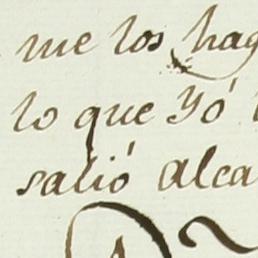 me los hag
lo que Yó
salió alca